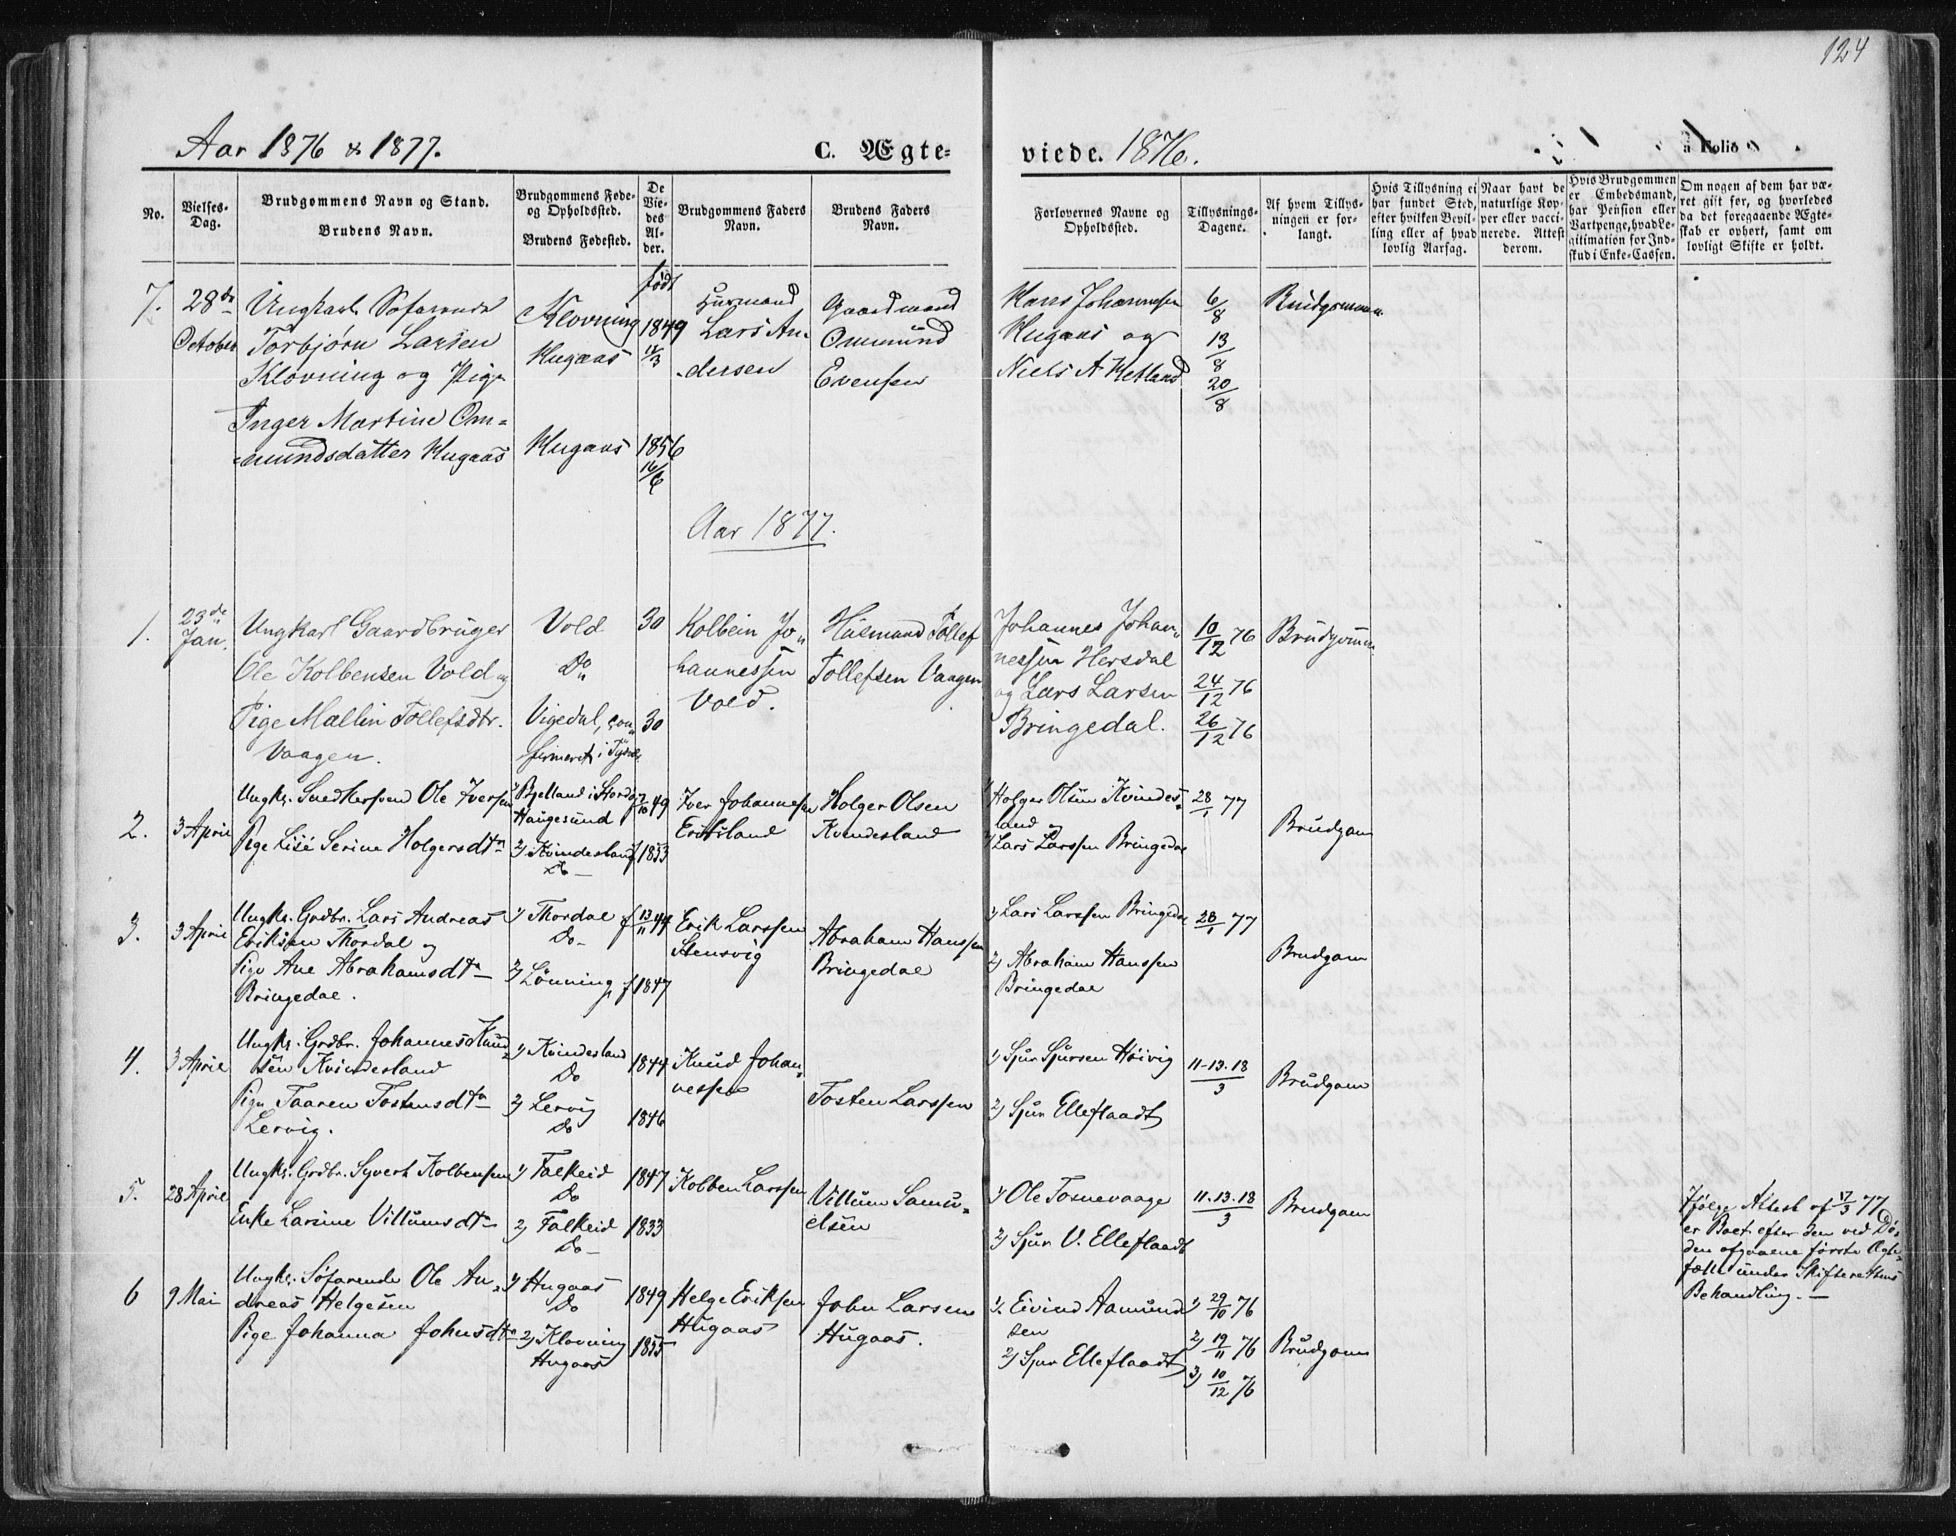 124
Aar 1876 & 1877.
C. Ægte-
viede. 1876.
a Folio
No.
Vielses-
Dag.
Brudgommens Navn og Stand.
Brudens Navn.
Brudgommens Føde-
og Opholdssted.
Brudens Fødested.
De
Vie-
des
Al-
der.
Brudgommens Faders
Navn.
Brudens Faders
Navn.
Forlovernes Navne og
Opholdssted.
Tillysnings-
Dagene.
Af hvem Tillys-
ningen er for-
langt.
Hvis Tillysning ei
har fundet Sted,
efter hvilken Bevil-
ling eller af hvad
lovlig Aarsag.
Naar havt de
naturlige Kop-
per eller vacci-
nerede. Attest
derom.
Hvis Brudgommen
er Embedsmand,
har Pension eller
Vartpenge, hvad Le-
gitimation for Ind-
skud i Enke-Cassen.
Om nogen af dem har væ-
ret gift før, og hvorledes
da det foregaaende Ægte-
skab er ophørt, samt om
lovligt Skifte er holdt.
7.
28de
October
Ungkarl Søfarende
Torbjørn Larsen
Klovning og Pige
Inger Martine Om-
mundsdatter Hugaas
Klovning
Hugaas
Hugaas
født
1849
1856
16/6
Husmand
Lars An-
dersen
Gaardmand
Ommund
Evensen
Hans Johannesen
Hugaas og
Niels A Hetland
6/8
13/8
20/8
Brudgommen
Aar 1877.
1.
23de
Jan.
Ungkarl Gaardbruger
Ole Kolbensen Vold og
Pige Mallin Tollefsdtr.
Vaagen.
Vold
Do
Vigedal, con-
firmeret i Tysvær
30
30
Kolbein Jo-
hannessen
Vold.
Husmand Tollef
Tollefsen Vaagen
Johannes Johan-
nessen Hersdal
og Lars Larsen
Bringedal.
10/12 76
24/12 76
26/12 76
Brudgommen
2.
3 April
Ungk. Snedkersvend Ole Iversen
Pige Lise Serine Holgersdtr
1) Bjelland i Stord
Haugesund
2) Kvindesland
Do
f 7/10 49
f 1853
Iver Johannesen
Holger Olsen
Kvindesland
1) Holger Olsen Kvindes-
land og
2) Lars Larssen Bringedal
28/1 77
Brudgom
3.
3 April
Ungk. Grdbr. Lars Andreas
Eriksen Thordal og
Pige Ane Abrahamsdtr
Bringedal.
1) Thordal
Do
2) Lønning
f 13/11 44
f 1847
Erik Larssen
Stensvig
Abraham Hanssen
Bringedal
1) Lars Larssen Bringedal
2) Abraham Hanssen
Bringedal
28/1 77
Brudgom
4.
3 April
Ungk. Grdbr. Johannes Knud-
sen Kvindesland
Pige Taaren Tostensdtr
Lervig.
1) Kvindesland
Do
2) Lervig
Do
1844
1846
Knud Johan-
nessen
Tosten Larssen
1) Sjur Sjursen Høivig
2) Sjur Elleflaadt
11-13.18/3
Brudgom
5.
28 April
Ungk. Grdbr. Syvert Kolbensen
Enke Larsine Villumsdtr
1) Falkeid
Do
2) Falkeid
Do
1847
1833
Kolben Larssen
Villum Samu-
elsen
1) Ole Tosnevaage
2) Sjur V. Elleflaadt
11.13.18/3
Brudgom
Ifølge Attest af 17/3 77
er Boet efter den ved Dø-
den afgaaene første Ægte-
fælle under Skifterettens
Behandling.
6
9 Mai
Ungk. Søfarende Ole An-
dreas Helgesen
Pige Johanna Johnsdtr
1) Hugaas
Do
2) Klovning
Hugaas
1849
1855
Helge Eriksen
Hugaas
John Larsen
Hugaas.
1. Eivind Aamund-
sen
2) Sjur Elleflaadt
1) 29/10 76
2) 19/11 76
3) 10/12 76
Brudgom